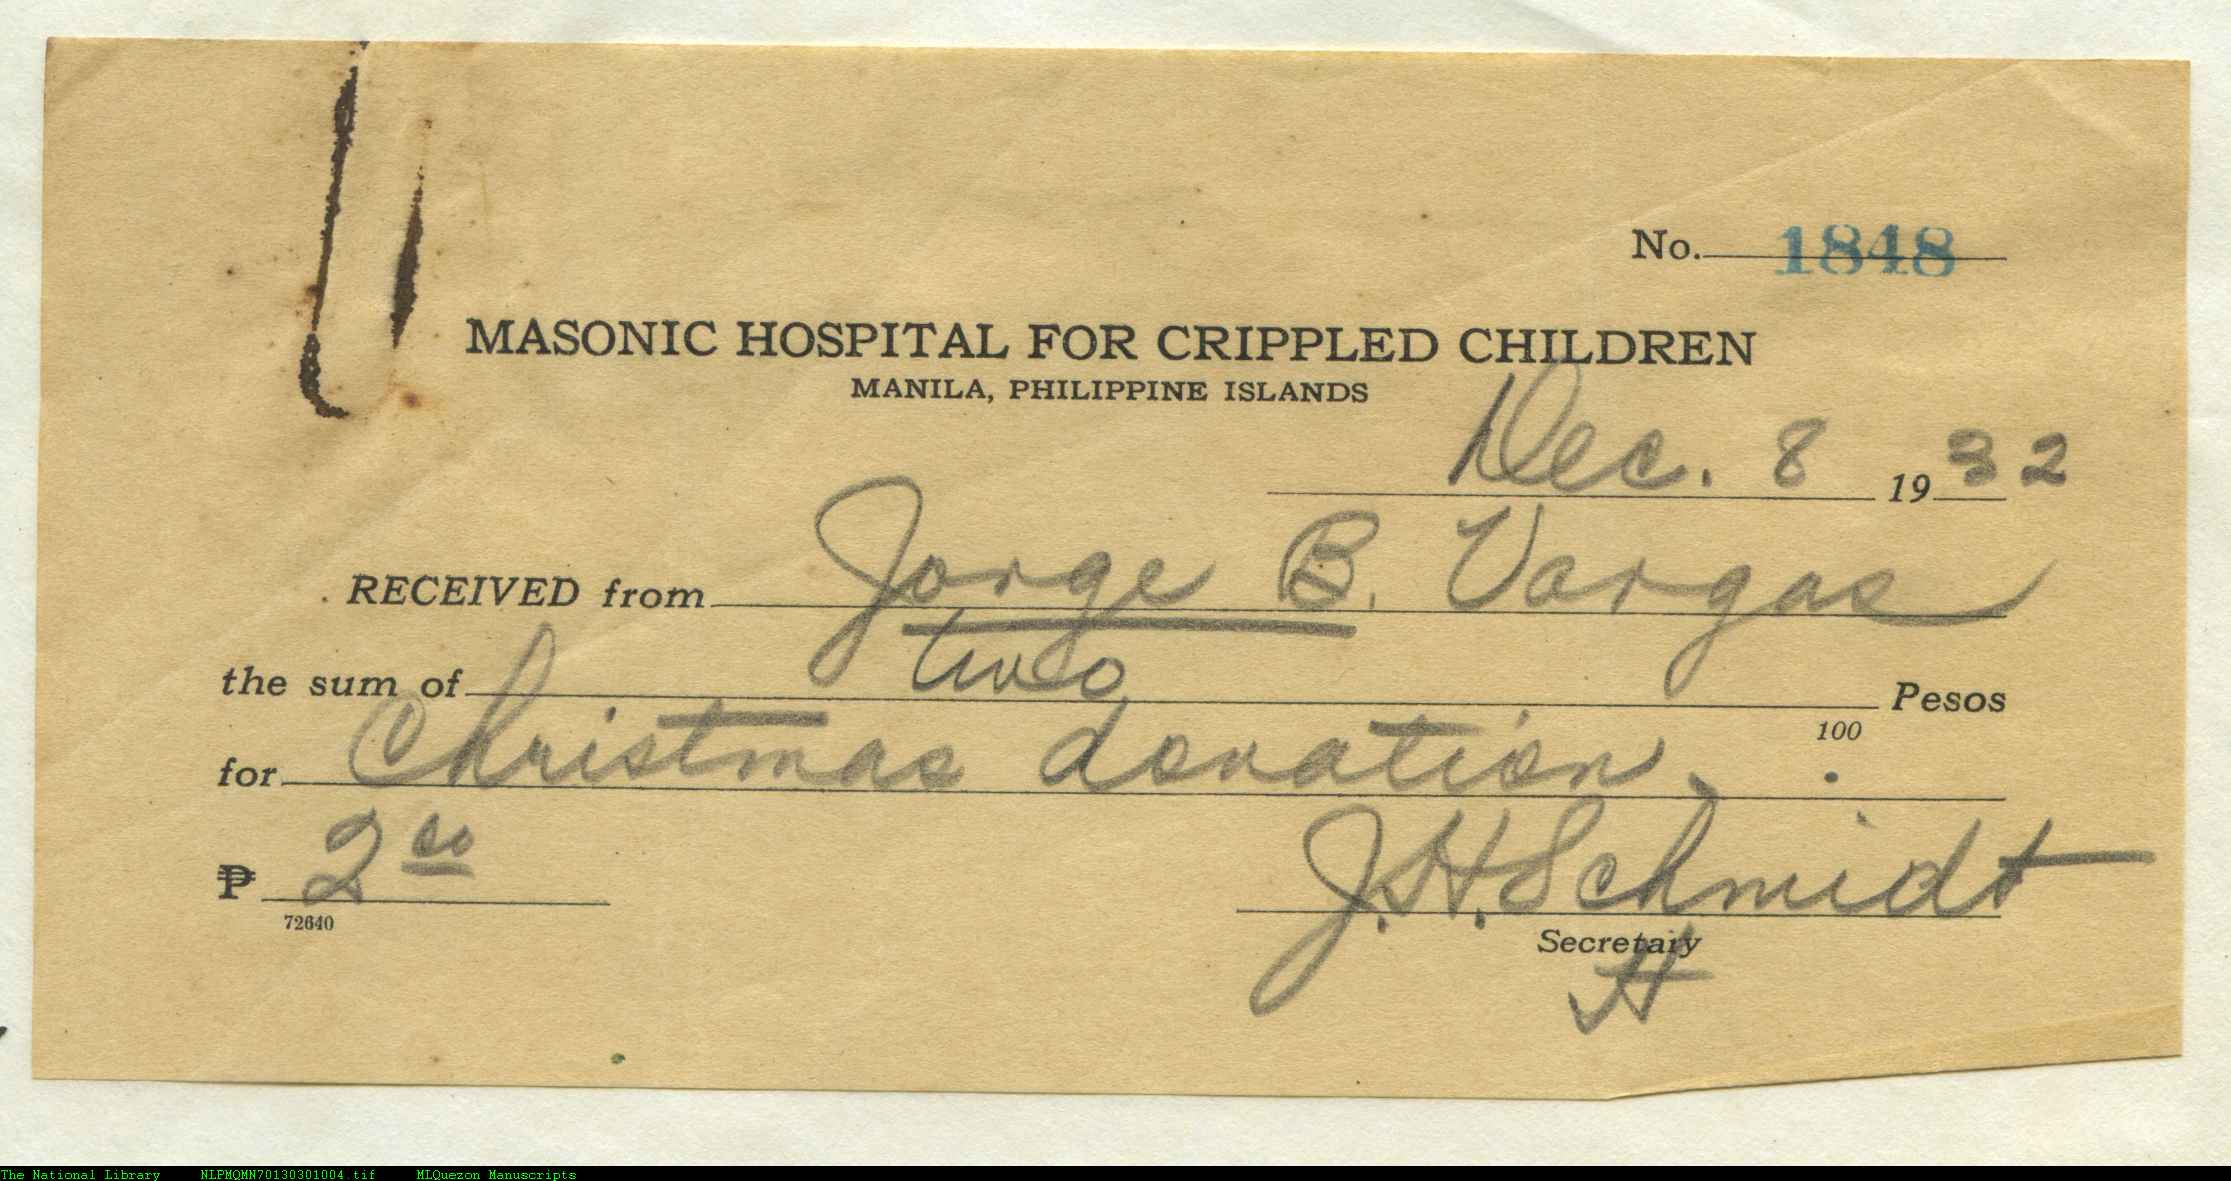 No. 1848
MASONIC HOSPITAL FOR CRIPPLED CHILDREN
MANILA, PHILIPPINE ISLANDS
Dec. 8 1932
RECEIVED from Jorge B. Vargas
the sum of two Pesos
100
for Christmas donation.
₱ 2 00
J. H. Schmidt
72640
Secretary
H
The National Library NLPMQMN70130301004.tif MLQuezon Manuscripts